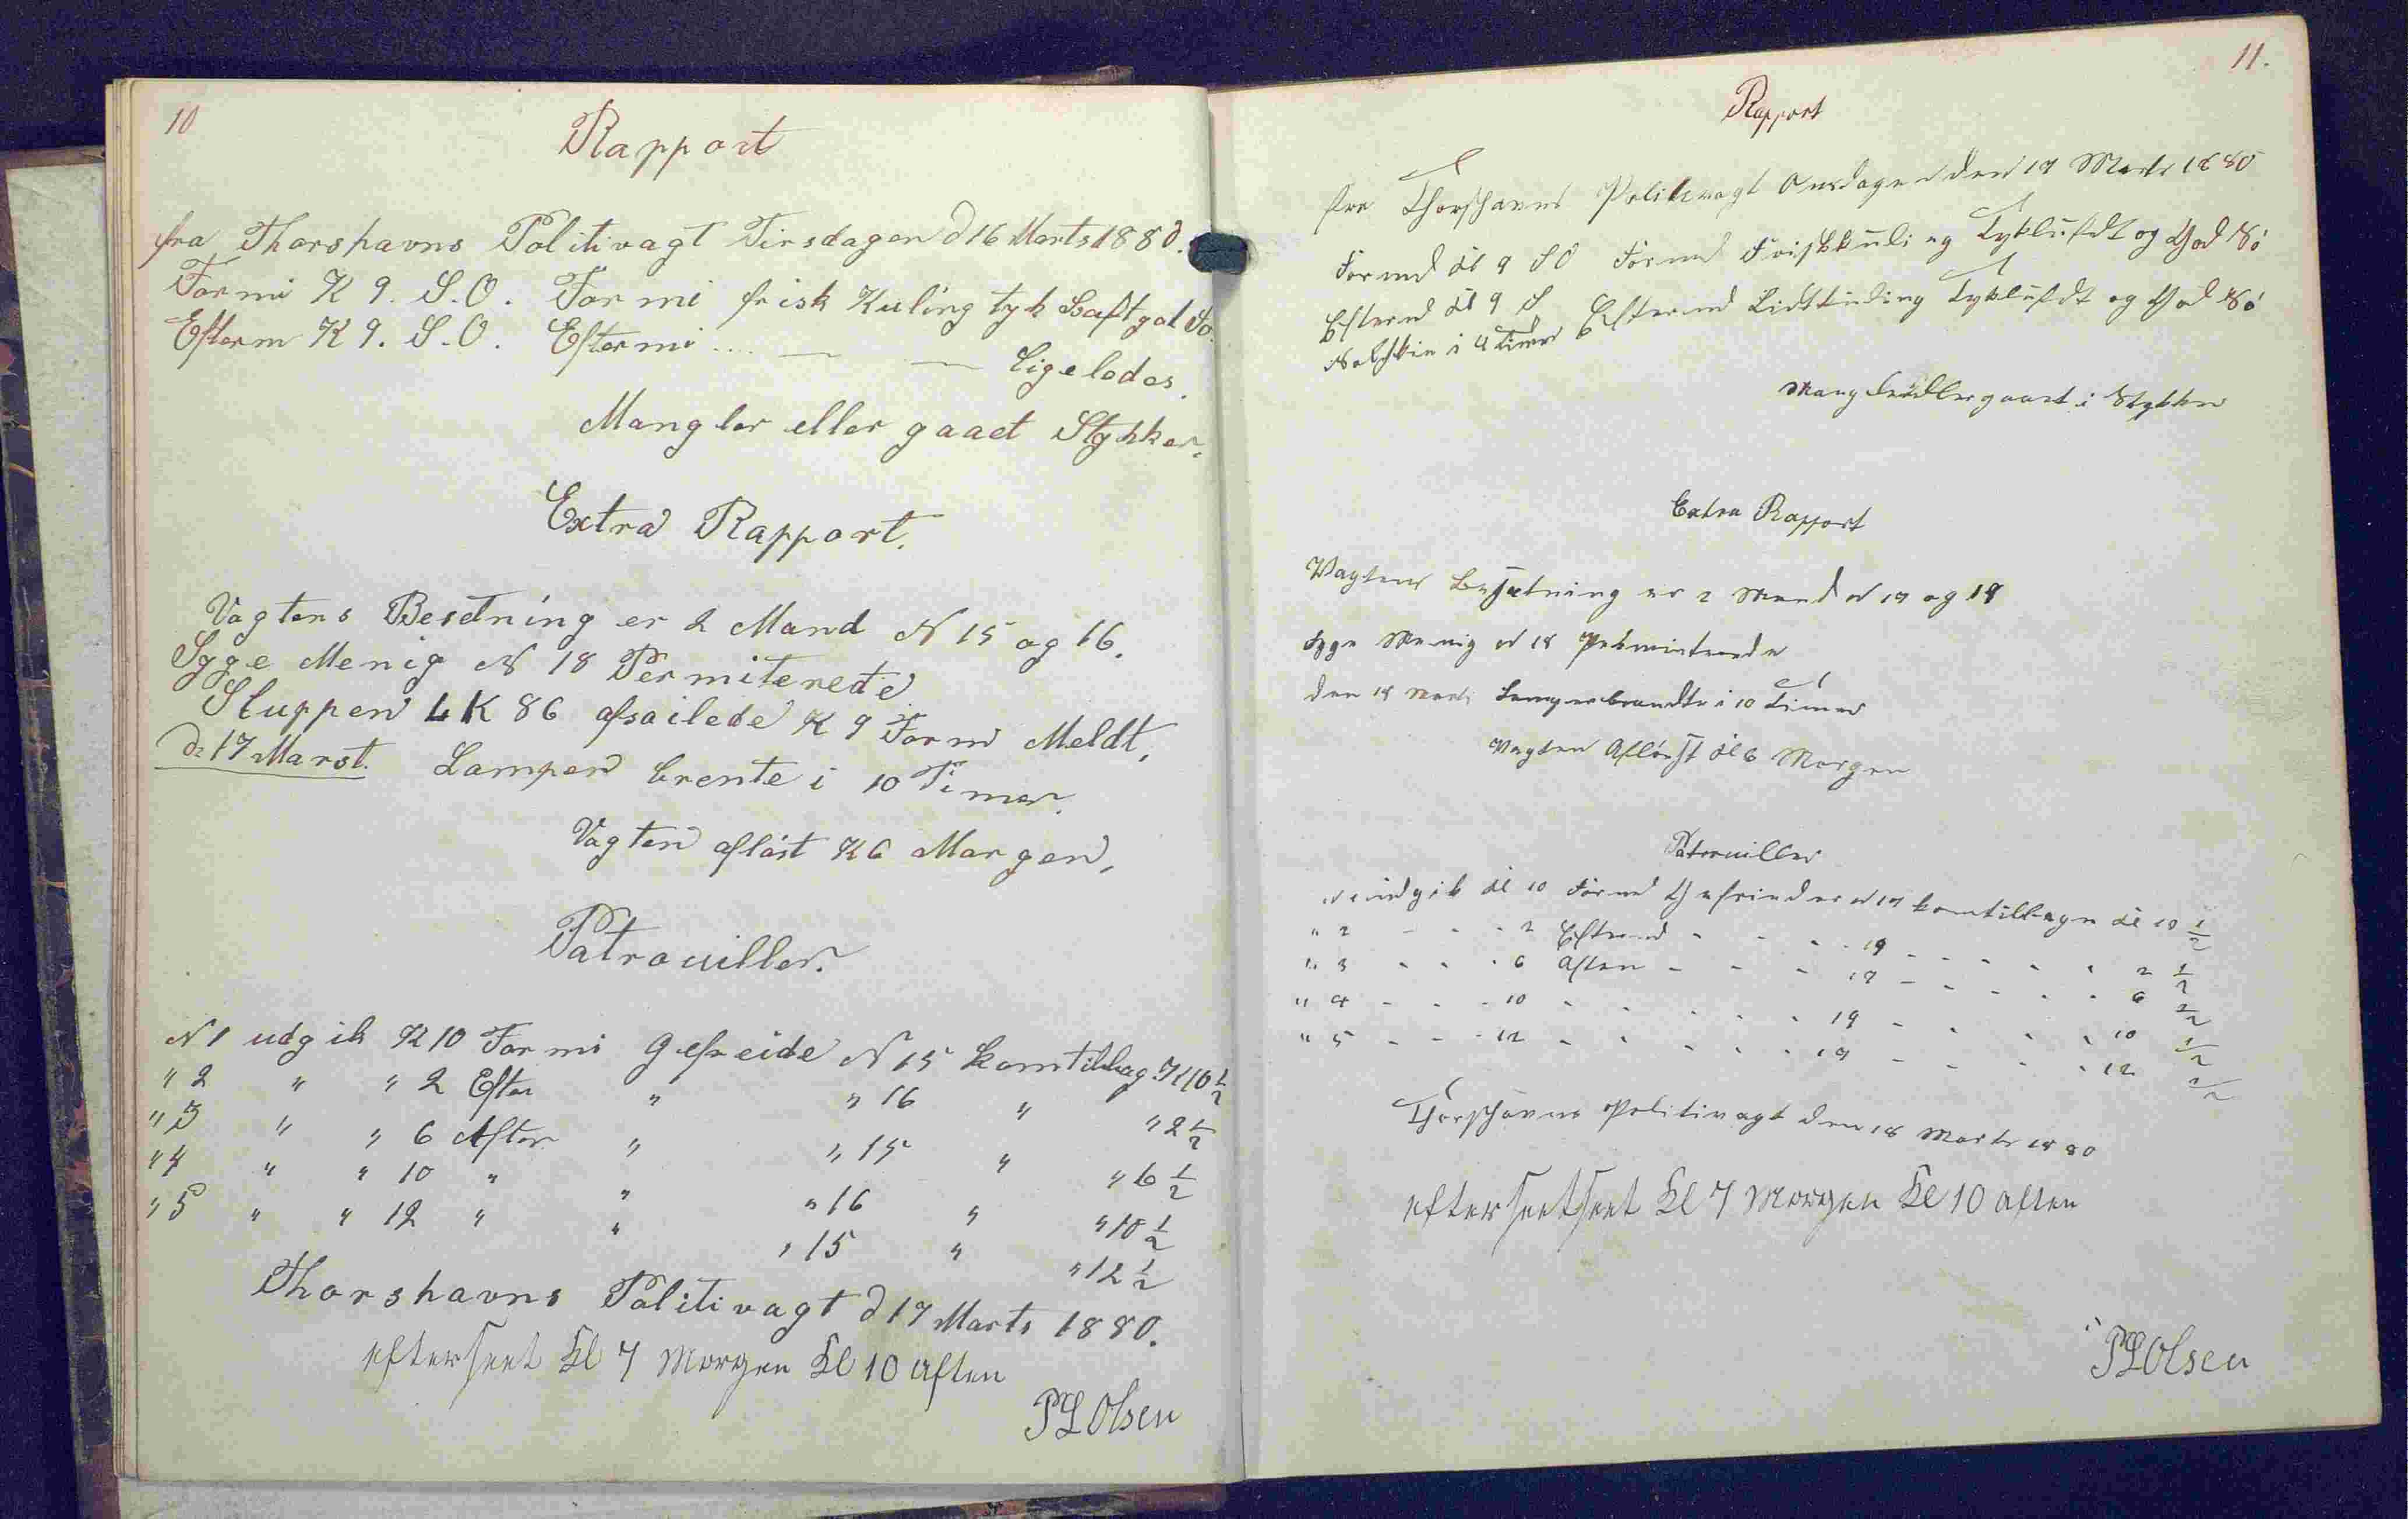 10
Rapport
fra Thorshavns Politivagt Tirsdagen d 16 Marts 1880.
Formi K 9. S.O. Formi frisk Kuling tyk Luft god Sø.
Efterm K 9. S.O. Eftermi ... — — Ligeledes.
Mangler eller gaaet Stykker.
Extra Rapport.
Vagtens Besetning er 2 Mand N 15 og 16.
Syge Menig N 18 Permiterede
Sluppen LK 86 afsailede K 9 Form Meldt,
d. 17 Marst. Lampen brente i 10 Timer.
Vagten afløst K 6 Morgen,
Patrouiller.
N 1 udgik K 10 Formi Gefreide N 15 kom tilbag K 10 1/2
" 2 " " 2 Efter " " 16 " " 2 1/2
" 3 " " 6 Aften " " 15 " " 6 1/2
" 4 " " 10 " " " 16 " " 10 1/2
" 5 " " 12 " " " 15 " " 12 1/2
Thorshavns Politivagt d 17 Marts 1880.
efterseet Kl 7 Morgen Kl 10 Aften
PL Olsen
11.
Rapport
fra Thorshavns Politivagt Onsdagen den 17 Marts 1880
Formd Kl 9 SO Formd Friskkuling Tykluft og God Sø
Eftermd Kl 9 S Eftermd Lidtkuling Tykluft og God Sø
Solskin i 4 Timer
gaaet i Stykker
Extra Rapport
Vagtens Besætning er 2 Mand N 17 og 19
Syge Menig N 18 Permiterede
den 18 Marts Lampen brændte i 10 Timer
Vagten Afløst Kl 6 Morgen
Patrouiller
N 1 udgik Kl 10 Formd Gefreider N 17 kom tilbage Kl 10 1/2
" 2 - - - 2 Eftermd - - - 19 - - - - 2 1/2
" 3 - - - 6 Aften - - - 17 - - - - 6 1/2
" 4 - - - 10 - - - - 19 - - - - 10 1/2
" 5 - - - 12 - - - - 17 - - - - 12 1/2
Thorshavns Politivagt den 18 Marts 1880
efterseetseet Kl 7 Morgen Kl 10 aften
PL Olsen